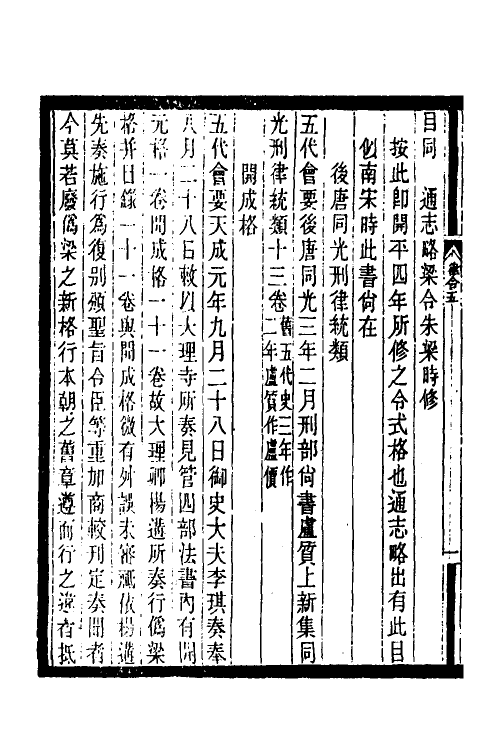 目同　通志略梁令朱梁時修
按此即開平四年所修之令式格也通志略出有此目
似南宋時此書尚在
後唐同光刑律統類
五代會要後唐同光三年二月刑部尚書盧質上新集同
光刑律統類十三卷舊五代史三年作二年盧質作盧價
開成格
五代會要天成元年九月二十八日御史大夫李琪奏奉
八月二十八日敕以大理寺所奏見管四部法書內有開
元格一卷開成格一十一卷故大理卿楊遘所奏行僞梁
格并目錄一十一卷與開成格微有舛誤未審祗依楊遘
先奏施行爲復別頒聖旨令臣等重加商較刊定奏聞者
今莫若廢僞梁之新格行本朝之舊章遵而行之違者抵
律令五